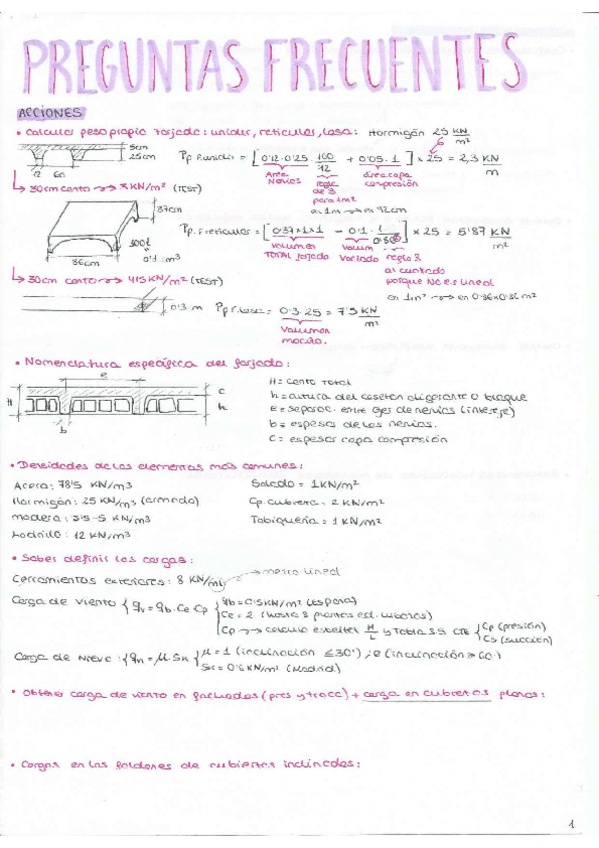 PREGUNTAS FRECUENTES
ACCIONES
• Calcular peso propio forjado: unidir, reticular, losa: Hormigón 25 KN/m²
5cm
25cm
12 60
Pp.F.unidir = [0'12·0'25·100/12 + 0'05·1] × 25 = 2,3 KN/m
Area Nervios
regla de 3 para 1m²
área capa compresión
en 1m → en 12cm
↳ 30cm canto → KN/m² (TEST)
37cm
100l
0'1 m³
86cm
Pp.F.reticular = [0'37×1×1 - 0'1·(1/0'86²)] × 25 = 5'87 KN/m²
Volumen TOTAL forjado
Volum Vaciado
regla 3 al cuadrado porque NO es lineal
en 1m² → en 0'86×0'86 m²
↳ 30cm canto → 4'15 KN/m² (TEST)
0'3 m
Pp F losa = 0'3·25 = 7'5 KN/m²
Volumen macizo.
• Nomenclatura específica del forjado:
e
H
c
h
b
H = canto total
h = altura del casetón aligerante o bloque
E = separac. entre ejes de nervios (intereje)
b = espesor de los nervios.
C = espesor capa compresión
• Densidades de los elementos más comunes:
Acero: 78'5 KN/m3
Hormigón: 25 KN/m3 (armado)
Madera: 3'5-5 KN/m3
Ladrillo: 12 KN/m3
Solado = 1KN/m²
Cp. cubierta: 2 KN/m²
Tabiquería = 1 KN/m²
• Saber definir las cargas:
Cerramientos exteriores: 8 KN/ml → metro lineal
Carga de viento { qv = qb·Ce·Cp { qb = 0'5KN/m² (España)
Ce = 2 (hasta 8 plantas ed. urbanos)
Cp → calculo esbeltez H/L y Tabla 3.5 CTE { Cp (presión)
Cs (succión)
Carga de Nieve: { qn = μ·Sk { μ = 1 (inclinación ≤30°); 0 (inclinación ≥60°)
Sk = 0'6 KN/m² (Madrid)
• Obtener carga de viento en fachadas (pres y tracc) + carga en cubiertas planas:
• Cargas en los faldones de cubiertas inclinadas:
1